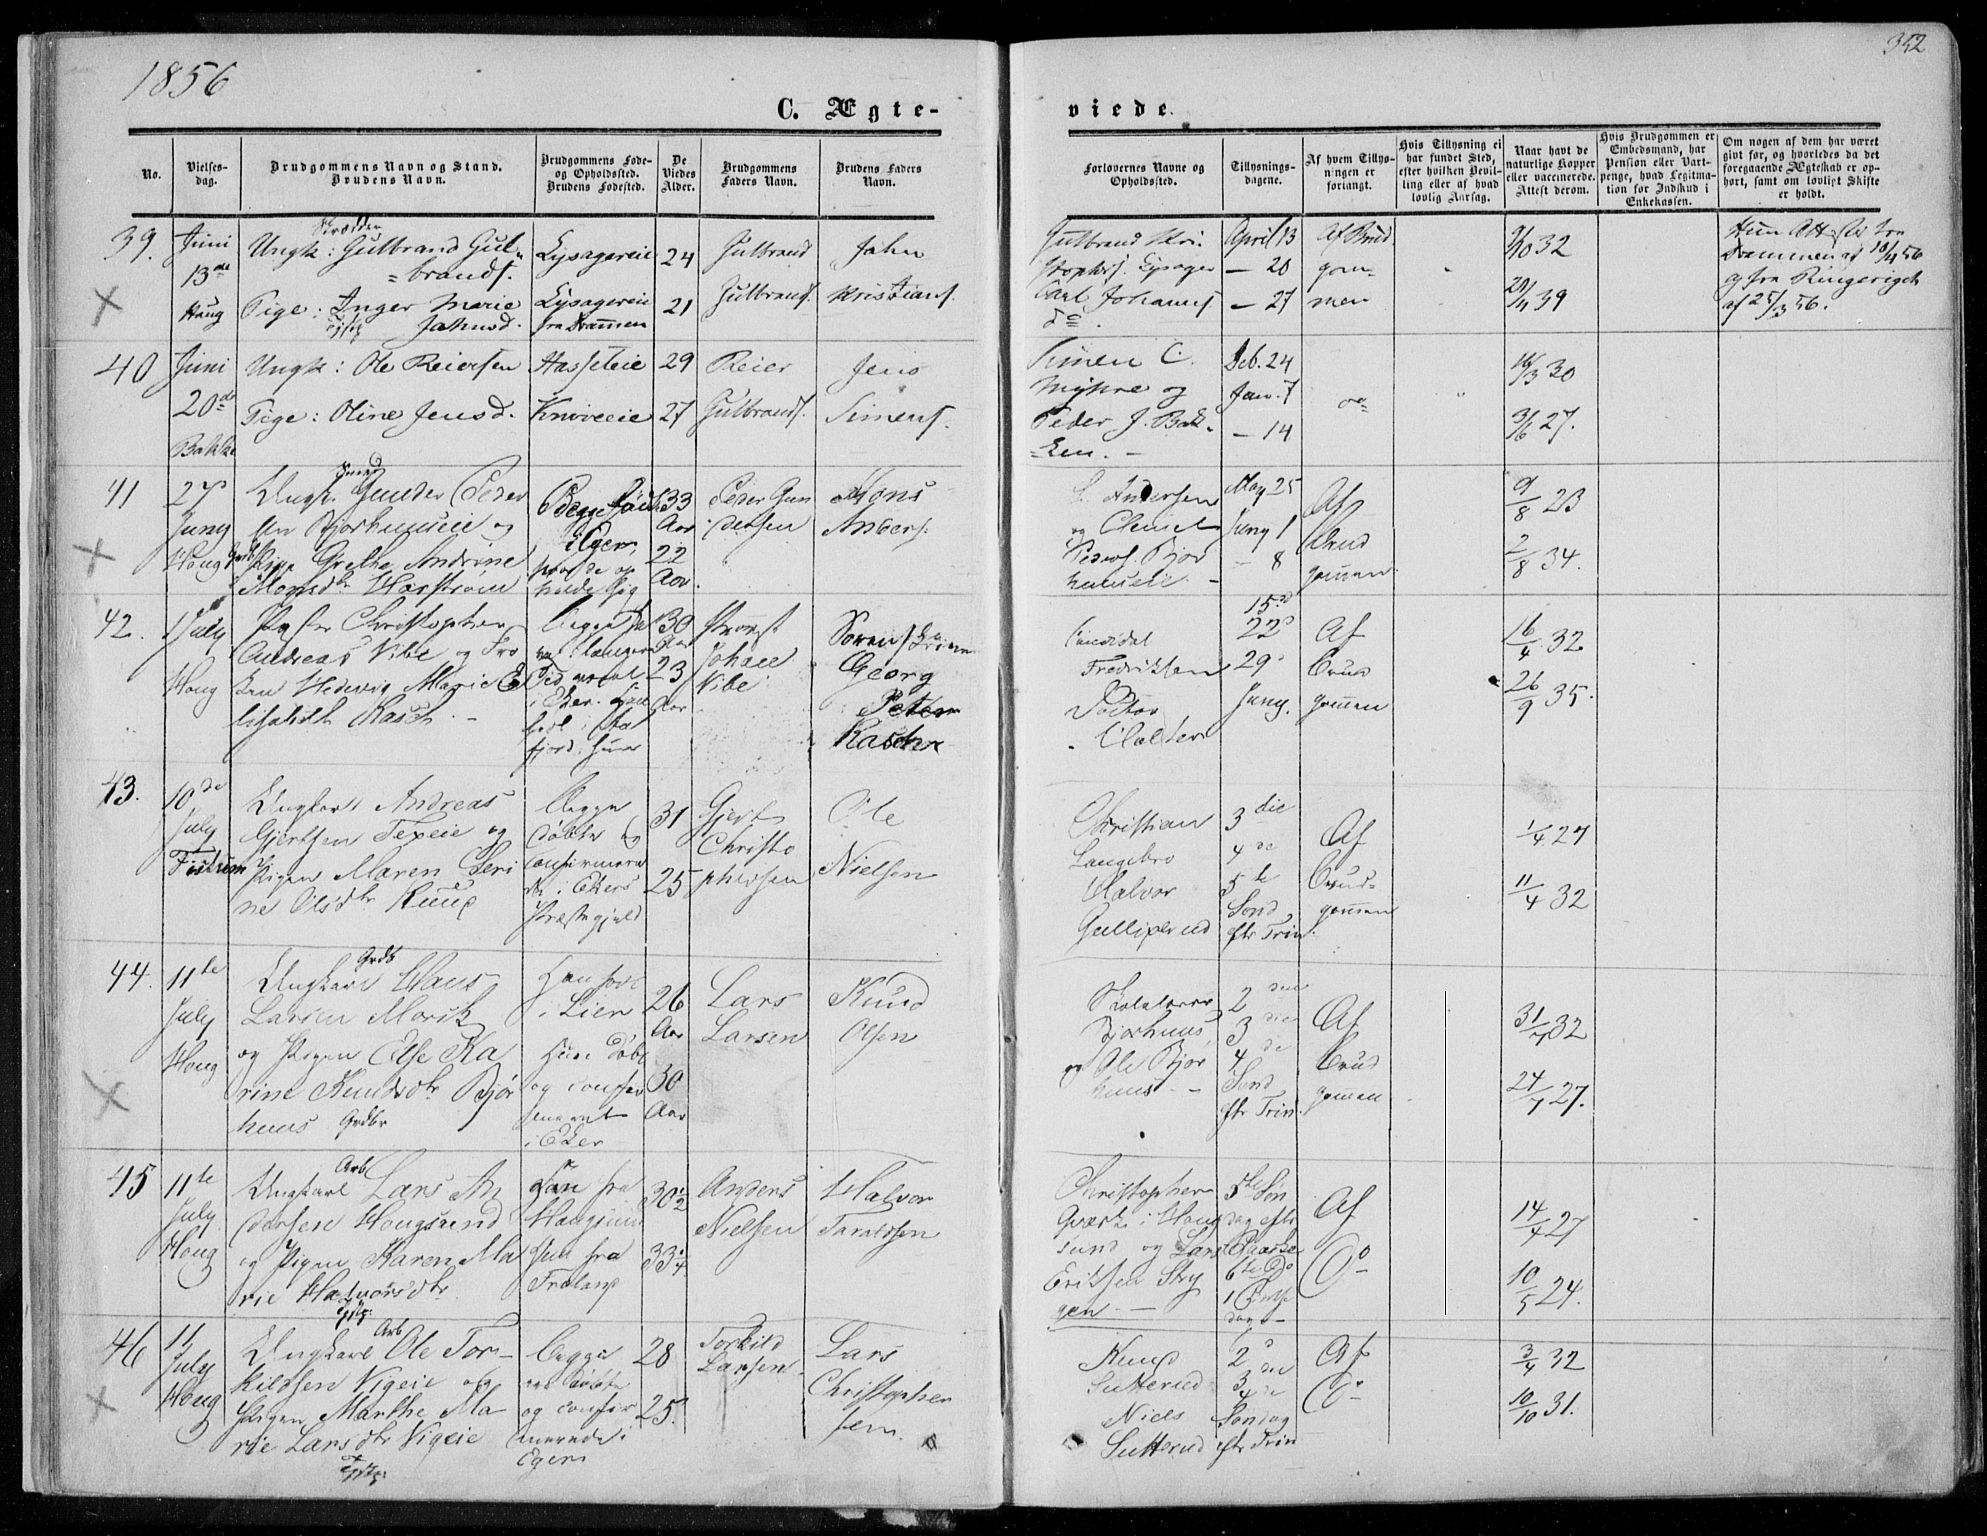 1856
352
C. Ægte-
viede.
No.
Vielses-
dag.
Brudgommens Navn og Stand.
Brudens Navn.
Brudgommens Føde-
og Opholdssted.
Brudens Fødested.
De
Viedes
Alder.
Brudgommens
Faders Navn.
Brudens Faders
Navn.
Forlovernes Navne og
Opholdssted.
Tillysnings-
dagene.
Af hvem Tillys-
ningen er
forlangt.
Hvis Tillysning ei
har fundet Sted,
efter hvilken Bevil-
ling eller af hvad
lovlig Aarsag.
Naar havt de
naturlige Kopper
eller vaccinerede.
Attest derom.
Hvis Brudgommen er
Embedsmand, har
Pension eller Vart-
penge, hvad Legitima-
tion for Indskud i
Enkekassen.
Om nogen af dem har været
gift før, og hvorledes da det
foregaaende Ægteskab er op-
hørt, samt om lovligt Skifte
er holdt.
39.
Juni
13de
Haug
Skrædder
Ungk: Gulbrand Gul-
brands.
Pige: Inger Marie
Jahnsd.
Lysagereie
Lysagereie
fra Drammen
24
21
Gulbrand
Gulbrands.
Jahn
Kristians.
Gulbrand Kri-
stophers. Lysager
Carl Johans.
do.
April 13
— 20
— 27
Af Brud
gom-
men
9/10 32
29/11 39
Hun Att
Drammen af
og fra Ringeriget
af 25/3 56.
40
Juni
20de
Bakke
Ungk: Ole Reiersen
Pige: Oline Jensd.
Hasseleie
Knoveeie
29
27
Reier
Gulbrands.
Jens
Simens.
Simen C.
Myhre og
Peder J. Bak-
ken.
Feb. 24
Jan. 7
— 14
do
16/3 30
3/6 27.
41
27
Juny
Houg
Ungk. Gunder Peder
sen Bjørhuuseie og
Pige Grethe Andrine
Monsdtr Horstrøm
Begge fød
i Eger
33
Aar
22
Aar.
Peder Gun
dersen
Mons
Anders.
Andersen
og Clemet
Peders. Bjør
huuseie
May 25
Juny 1
— 8
Af
Brud
gommen
9/8 23
2/8 34.
42.
1 July
Houg
Christopher
Andreas Vibe og Frø
ken Hedevig Marie E
lisabeth Rasch.
30
Aar
23
Aar
Provst
Johan
Vibe
Søren
Georg
Peter
Rasch
Candidat
Fredriksen
Doctor
15de
22
29
Juny.
Af
Brud
gommen
16/4 32
26/9 35.
43.
10de
July
Fiskum
Ungkarl Andreas
Gjertsen Texeie og
Pigen Maren Seri
ne Olsdtr Ruud
Begge
døbte og
confirmere
de i Ekers
Præstegjeld
31
25
Gjert
Christo
phersen
Ole
Nielsen
Christian
Langebro
Halvor
Gulliperud
3die
4de
5te
Sønd
eftr Trin
Af
Brud-
gommen
1/4 27
11/4 32
44.
11te
July
Houg
Grdb
Ungkarl Claus
Larsen Morik
og Pigen Else Ka
rine Knudsdtr Bjør
huus Grdbr
Han født
i Lier
Hun døbt
og confir
meret
i Eker
26
Aar
30
Aar
Lars
Larsen
Knud
Olsen
Skolelærer
Bjørhuus
og Ole Bjør
huus
2den
3die
4de
Sønd
eftr Trin
Af
Brud
gommen
31/7 32
24/7 27.
45
11te
July
Houg
Arb
Ungkarl Lars An
dersen Hougsund
og Pigen Karen Ma
rie Halvorsdtr
Han fra
Hougsund
Hun fra
Froland
30½
33¼
Anders
Nielsen
Halvor
Taraldsen
Christopher
Qværk i Houg
sund og Lars
Eriksen Sty
gen
5te Søn
dag eftr
Paaske
6te Do
1 Pintse
dag
Af
Do
14/7 27
10/5 24.
46
11
July
Houg
Arb
Ungkarl Ole Tor-
kildsen Vigeie og
Pigen Marthe Ma
rie Larsdtr Vigeie
Begge
ere døbte
og confir
merede i
Eger
28
25.
Torkild
Larsen
Lars
Christopher
sen.
Knud
Sutterud
Niels
Sutterud
2
3die
4de
Søndag
eftr Trin
Af
Do
3/4 32
10/10 31.